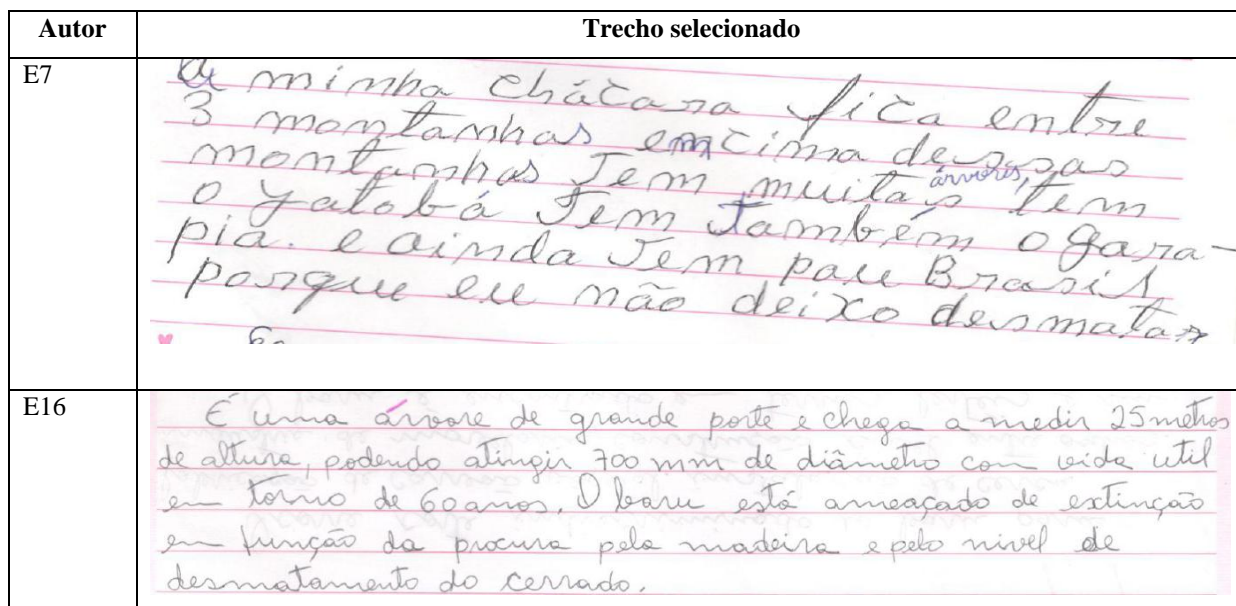 Autor Trecho selecionado
E7
A minha chácara fica entre
3 montanhas emcima dessas
montanhas Tem muitas árvores, tem
o Jatobá Tem Também o gara-
pia. e ainda Tem pau Brasil
porque eu não deixo desmatar
E16
É uma árvore de grande porte e chega a medir 25 metros
de altura, podendo atingir 700 mm de diâmetro com vida util
em torno de 60 anos. O baru está ameaçado de extinção
em função da procura pela madeira e pelo nivel de
desmatamento do cerrado.